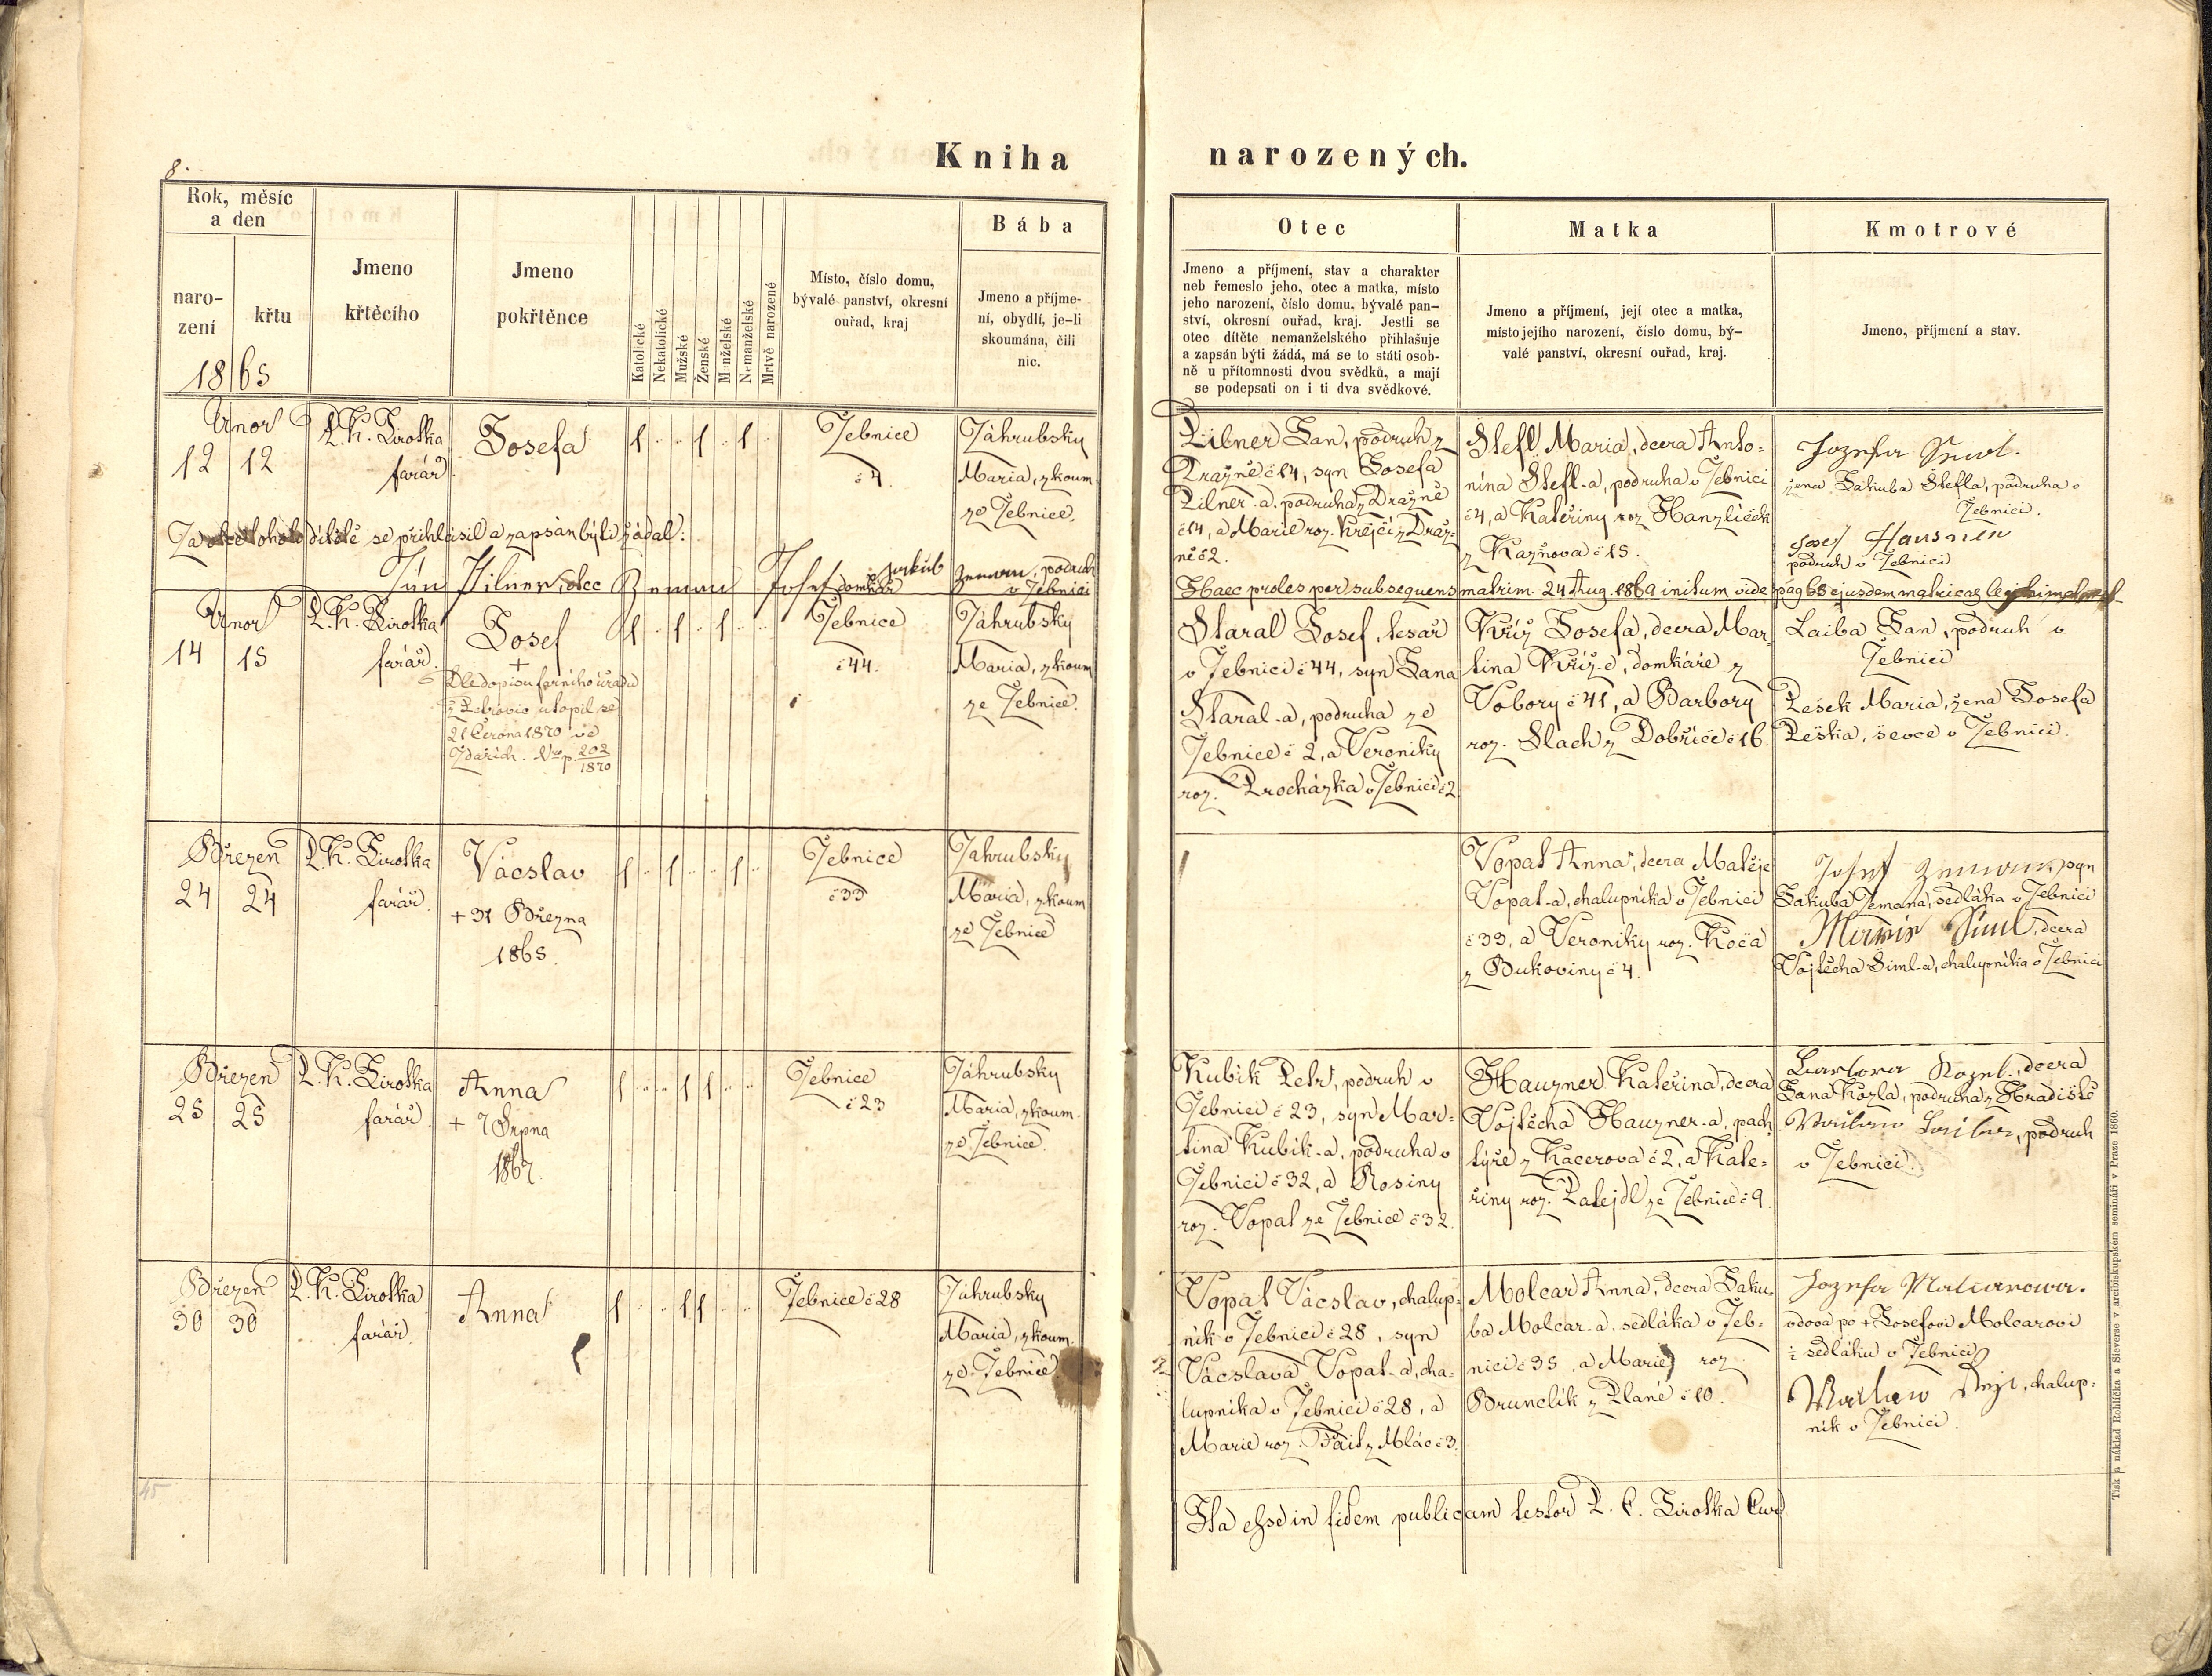 8.
Kniha narozených.
Rok, měsíc
a den
naro-
zení
křtu
1865
Jmeno
křtěcího
Jmeno
pokřtěnce
Katolické
Nekatolické
Mužské
Ženské
Manželské
Nemanželské
Mrtvě narozené
Místo, číslo domu,
bývalé panství, okresní
ouřad, kraj
Bába
Jmeno a příjme-
ní, obydlí, je-li
skoumána, čili
nic.
Otec
Jmeno a příjmení, stav a charakter
neb řemeslo jeho, otec a matka, místo
jeho narození, číslo domu, bývalé pan-
ství, okresní ouřad, kraj. Jestli se
otec dítěte nemanželského přihlašuje
a zapsán býti žádá, má se to státi osob-
ně u přítomnosti dvou svědků, a mají
se podepsati on i ti dva svědkové.
Matka
Jmeno a příjmení, její otec a matka,
místo jejího narození, číslo domu, bý-
valé panství, okresní ouřad, kraj.
Kmotrové
Jmeno, příjmení a stav.
Únor
12 12
P. K. Jirotka
farář.
Josefa
1 1 1
Žebnice
č 4.
Záhrubsky
Maria, zkoum.
ze Žebnice.
Pilner Jan, podruh z
Dražně č 14, syn Josefa
Pilner-a, podruha z Dražně
č 14, a Marie roz. Krejčí z Draž-
ně č 2.
Štefl Maria, dcera Anto-
nína Štefl-a, podruha v Žebnici
č 4, a Kateřiny roz. Hanzlíček
z Kaznova č 15.
Jozefa
žena Jakuba Štefla, podruha v
Žebnici.
Josef Hausner
podruh v Žebnici
Za otce tohoto dítěte se přihlásil a zapsán býti žádal:
Jan Pilner, otec Josef domkář Jakub Zeman, podruh
v Žebnici
Haec proles per subsequens matrim. 24 Aug. 1869 initum vide pag 68 ejusdem matricae
Únor
14 15
P. K. Jirotka
farář.
Josef
+
Dle dopisu farního úřadu
z Petrovic utopil se
21 Června 1870 ve
Ždářích. Nro p. 202
1870
1 1 1
Žebnice
č 44.
Záhrubsky
Maria, zkoum.
ze Žebnice.
Staral Josef, tesař
v Žebnici č 44, syn Jana
Staral-a, podruha ze
Žebnice č 2, a Veroniky
roz. Procházka v Žebnici č 2.
Kříž Josefa, dcera Mar-
tina Kříž-e, domkáře z
Vobory č 41, a Barbory
roz. Slach z Dobříče č 16.
Laiba Jan, podruh v
Žebnici
Pešek Maria, žena Josefa
Peška, ševce v Žebnici.
Březen
24 24
P. K. Jirotka
farář.
Vácslav
+ 31 Března
1865.
1 1 1
Žebnice
č 33
Zahrubsky
Maria, zkoum.
ze Žebnice
Vopat Anna, dcera Matěje
Vopat-a, chalupníka v Žebnici
č 33, a Veroniky roz. Koča
z Bukoviny č 4.
Josef Zeman, syn
Jakuba Zemana, sedláka v Žebnici
Marie Siml, dcera
Vojtěcha Siml-a, chalupníka v Žebnici
Březen
25 25
P. K. Jirotka
farář.
Anna
+ 7 Srpna
1867.
1 1 1
Žebnice
č 23
Záhrubsky
Maria, zkoum.
ze Žebnice.
Kubík Petr, podruh v
Žebnici č 23, syn Mar-
tina Kubík-a, podruha v
Žebnici č 32, a Rosiny
roz. Vopat ze Žebnice č 32.
Hauzner Kateřina, dcera
Vojtěcha Hauzner-a, pach-
týře z Kacerova č 2, a Kate-
řiny roz. Patejdl ze Žebnice č 9.
Barbora Kozel, dcera
Jana Kozla, podruha z Hradiště
Laiba, podruh
v Žebnici.
Březen
30 30
P. K. Jirotka
farář.
Anna
1 1 1
Žebnice č 28
Záhrubsky
Maria, zkoum.
ze Žebnice
Vopat Vácslav, chalup-
ník v Žebnici č 28, syn
Vácslava Vopat-a, cha-
lupníka v Žebnici č 28, a
Marie roz. Fait z Mlác č 3.
Molcar Anna, dcera Jaku-
ba Molcar-a, sedláka v Žeb-
nici č 35, a Marie roz.
Brunclík z Plané č 10.
Jozefa Malcarowa.
vdova po + Josefovi Molcarovi
½ sedláku v Žebnici
chalup-
ník v Žebnici.
45
Ita esse in fidem publicam testor P. C. Jirotka Cur
Tisk a náklad Rohlíčka a Sieverse v arcibiskupském semináři v Praze 1860.